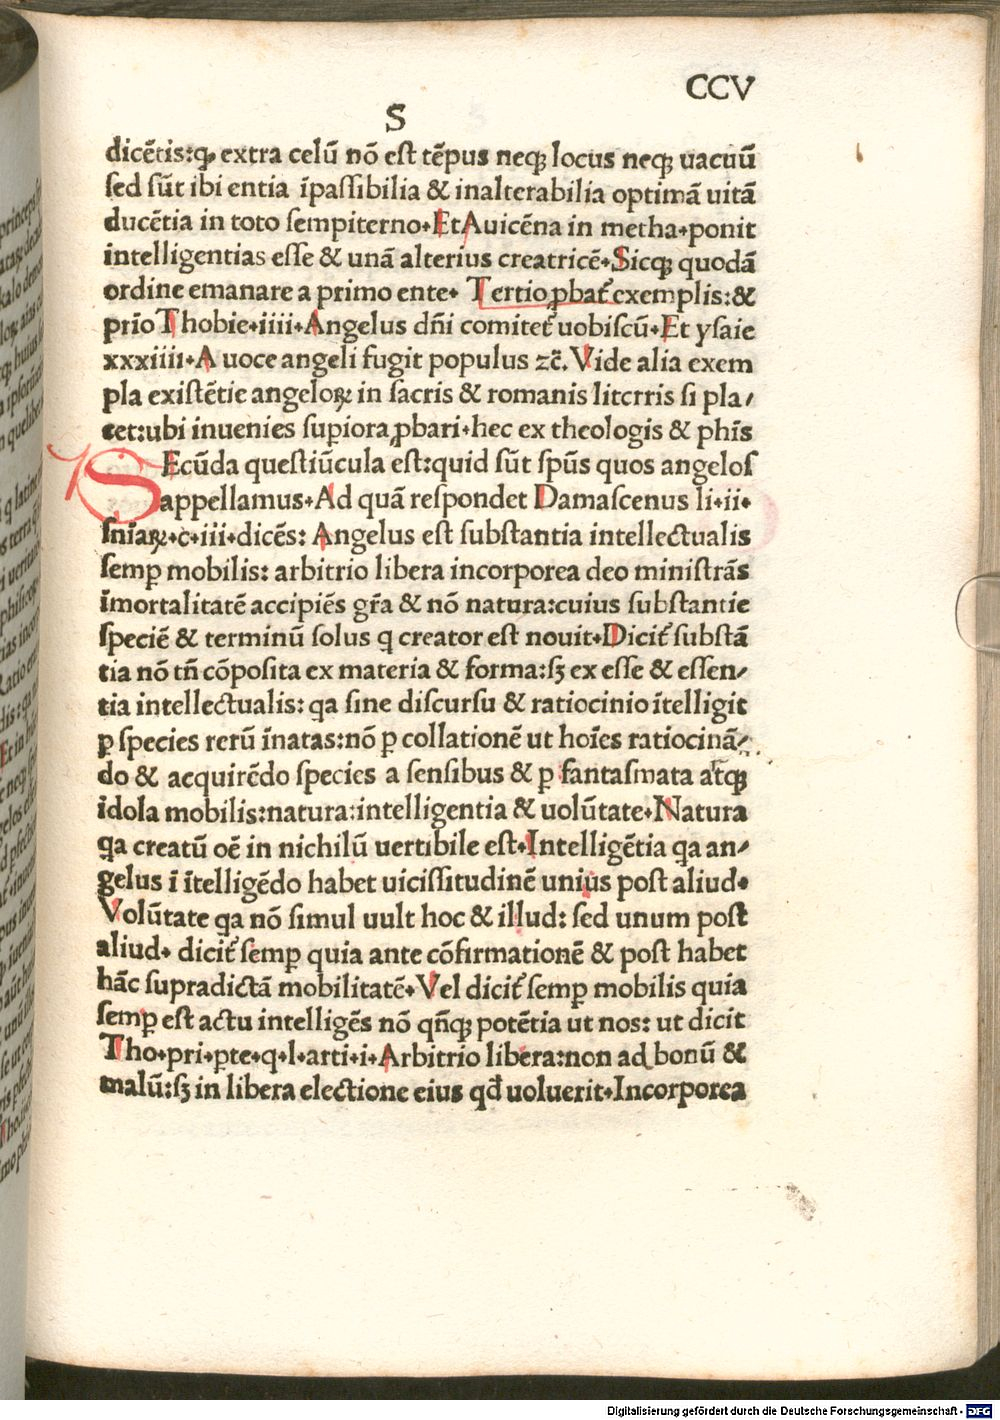 CCV
S
dicētis:ꝙ extra celū nō eſt tēpus neqꝫ locus neqꝫ uacuū
ſed ſūt ibi entia īpaſſibilia & inalterabilia optimā uitā
ducētia in toto ſempiterno.Et Auicēna in metha.ponit
intelligentias eſſe & unā alterius creatricē.Sicqꝫ quodā
ordine emanare a primo ente. Tertio ꝓbat᷑ exemplis:&
prīo Thobie.iiii.Angelus dn̄i comitet᷑ uobiſcū.Et yſaie
xxxiiii.A uoce angeli fugit populus ⁊c̄. Vide alia exem
pla exiſtētie angeloꝝ in ſacris & romanis litcrris ſi pla/
cet:ubi inuenies ſupiora ꝓbari.hec ex theologis & phīs
SEcūda queſtiūcula eſt:quid ſūt ſpūs quos angelos
appellamus.Ad quā reſpondet Damaſcenus li.ii.
ſnīaꝝ.c.iii.dicēs: Angelus eſt ſubſtantia intellectualis
ſemꝑ mobilis: arbitrio libera incorporea deo miniſtrās
īmortalitatē accipiēs gr̄a & nō natura:cuius ſubſtantie
ſpeciē & terminū ſolus q creator eſt nouit.Dicit᷑ ſubſtā
tia nō tn̄ cōpoſita ex materia & forma:ſꝫ ex eſſe & eſſen/
tia intellectualis: qa ſine diſcurſu & ratiocinio ītelligit
ꝑ ſpecies rerū īnatas:nō ꝑ collationē ut hoīes ratiocinā/
do & acquirēdo ſpecies a ſenſibus & ꝑ fantaſmata atqꝫ
idola mobilis:natura:intelligentia & uolūtate.Natura
qa creatū oē in nichilū uertibile eſt.Intelligētia qa an/
gelus ī ītelligēdo habet uiciſſitudinē unius poſt aliud.
Volūtate qa nō ſimul uult hoc & illud: ſed unum poſt
aliud. dicit᷑ ſemꝑ quia ante cōfirmationē & poſt habet
hāc ſupradictā mobilitatē.Vel dicit᷑ ſemꝑ mobilis quia
ſemꝑ eſt actu intelligēs nō qn̄qꝫ potētia ut nos: ut dicit
Tho.pri.pte.q.l.arti.i.Arbitrio libera:non ad bonū &
malū:ſꝫ in libera electione eius qd̄ uoluerit.Incorporea
Digitalisierung gefördert durch die Deutsche Forschungsgemeinschaft - DFG